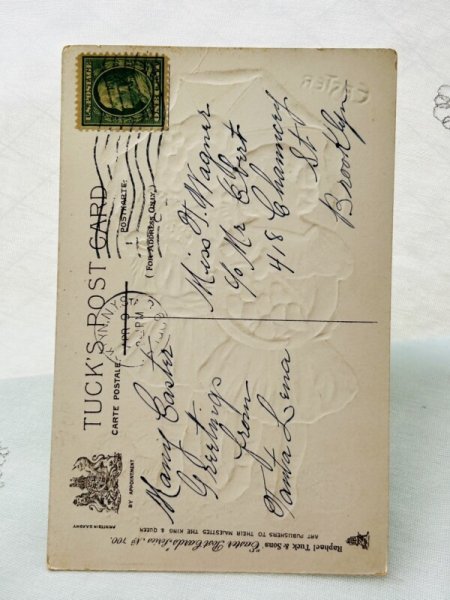 U.S.POSTAGE
ONE CENT
TUCK'S POST CARD
CARTE POSTALE
POSTKARTE
(FOR ADDRESS ONLY.)
BY APPOINTMENT
PRINTED IN SAXONY
APR 9
PM
Many Easter
Greetings
from
Tanta Lena
Miss F. Wagner
c/o Mr Ebert
418 Chauncey
St
Brooklyn
EASTER
Raphael Tuck & Sons "Easter" Post Cards Series, No 700.
ART PUBLISHERS TO THEIR MAJESTIES THE KING & QUEEN